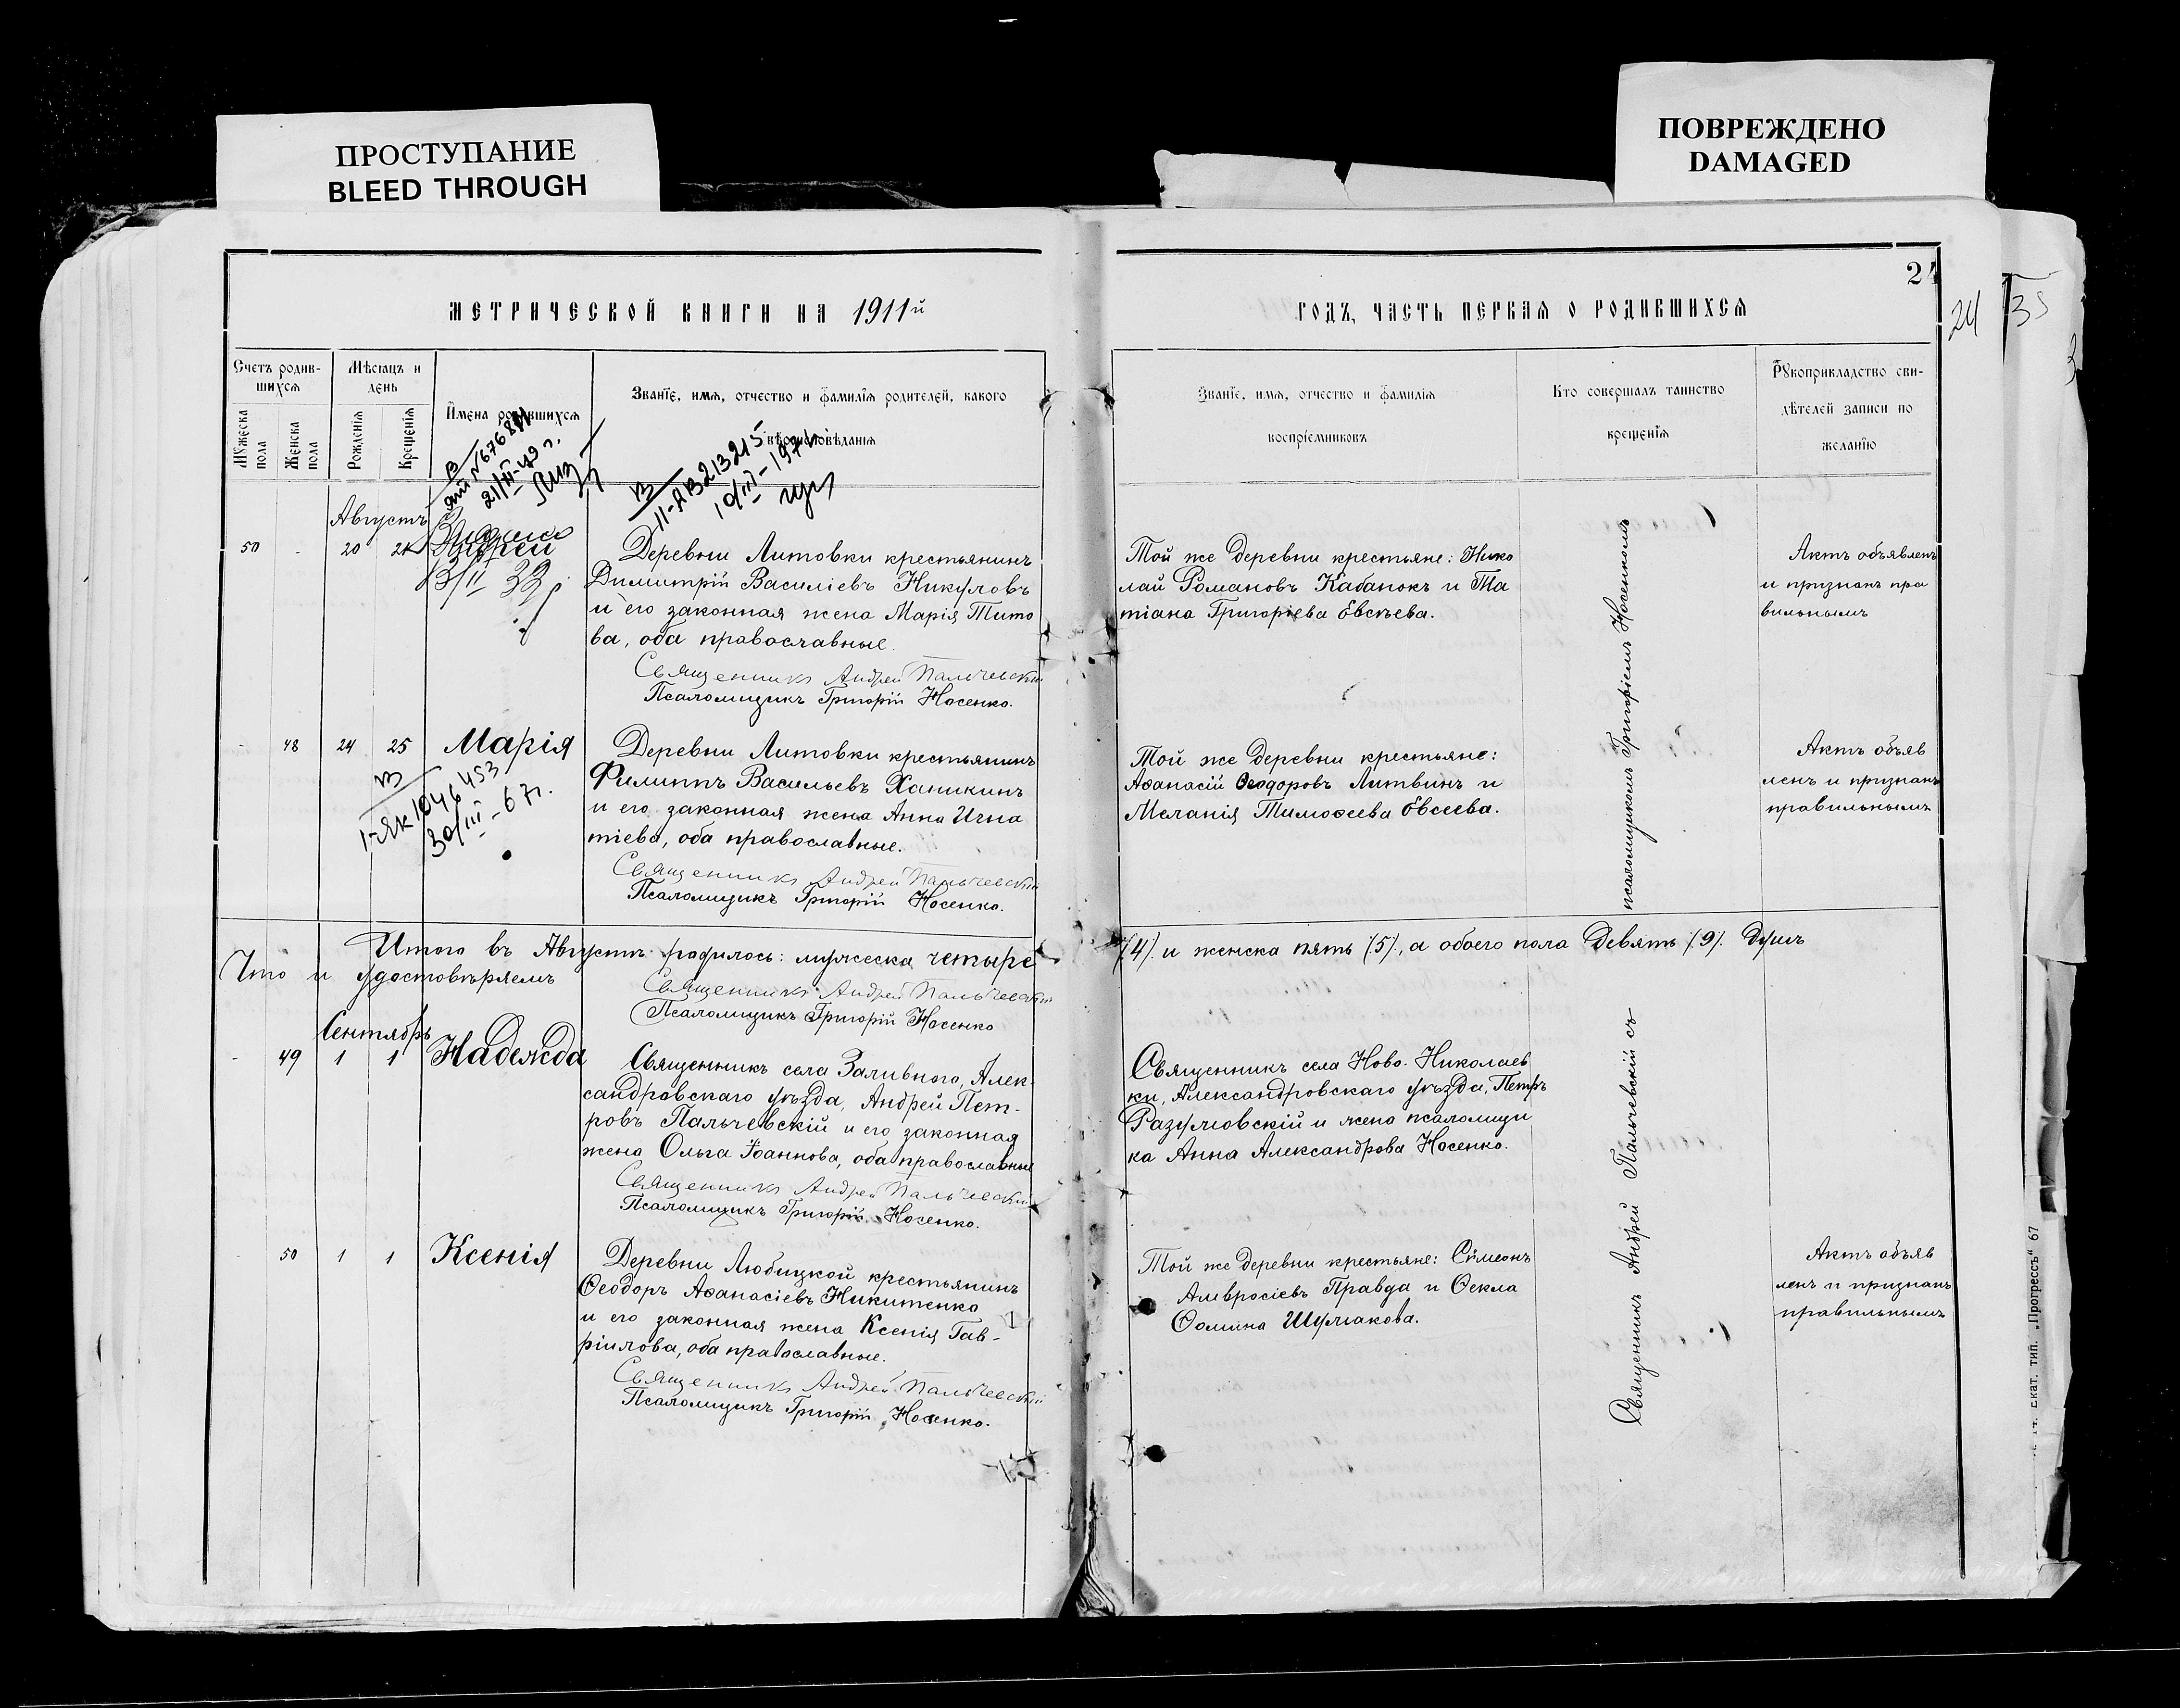 ПРОСТУПАНИЕ
BLEED THROUGH
ПОВРЕЖДЕНО
DAMAGED
24
24
35
МЕТРИЧЕСКОЙ КНИГИ НА 1911й
ГОДЪ, ЧАСТЬ ПЕРВАЯ О РОДИВШИХСЯ
Счетъ родив-
шихся
Мѣсяцъ и
день
Мужеска
пола
Женска
пола
Рожденія
Крещенія
Имена родившихся
Званіе, имя, отчество и фамилія родителей, какого
вѣроисповѣданія
Званіе, имя, отчество и фамилія
воспріемниковъ
Кто совершалъ таинство
крещенія
Рукоприкладство сви-
дѣтелей записи по
желанію
21/II-49 г.
II-ЯВ 213215
10/III-197
Августъ
50 - 20 21 Андрей
13/II 33
Деревни Литовки крестьянинъ
Димитрій Василіевъ Никуловъ
и его законная жена Марія Тито
ва, оба православные.
Священникъ Андрей Пальчевскій
Псаломщикъ Григорій Носенко.
Той же деревни крестьяне: Нико
лай Романовъ Кабанокъ и Та
тіана Григоріева Евсѣева.
Актъ объявленъ
и признанъ пра
вильнымъ
- 48 24 25 Марія
I-ЯК 1046453
30/III-67г.
Деревни Литовки крестьянинъ
Филиппъ Васильевъ Ханикинъ
и его законная жена Анна Игна
тіева, оба православные.
Священникъ Андрей Пальчевскій
Псаломщикъ Григорій Носенко.
Той же деревни крестьяне:
Аѳанасій Ѳеодоровъ Литвинъ и
Меланія Тимоѳеева Евсеева.
Актъ объяв
ленъ и признанъ
правильнымъ
Итого въ Августѣ родилось: мужеска четыре (4) и женска пять (5), а обоего пола девять (9) душъ
Что и удостовѣряемъ
Священникъ Андрей Пальчевскій
Псаломщикъ Григорій Носенко
Сентябрь
- 49 1 1 Надежда
Священникъ села Заливного, Алек-
сандровскаго уѣзда, Андрей Пет-
ровъ Пальчевскій и его законная
жена Ольга Іоаннова, оба православные
Священникъ Андрей Пальчевскій
Псаломщикъ Григорій Носенко.
Священникъ села Ново-Николаев
ки, Александровскаго уѣзда, Петръ
Разумовскій и жена псаломщи
ка Анна Александрова Носенко.
- 50 1 1 Ксенія
Деревни Любицкой крестьянинъ
Ѳеодоръ Аѳанасіевъ Никитенко
и его законная жена Ксенія Гав-
ріилова, оба православные.
Священникъ Андрей Пальчевскій
Псаломщикъ Григорій Носенко.
Той же деревни крестьяне: Сѵмеонъ
Амвросіевъ Правда и Ѳекла
Ѳомина Шумакова.
Актъ объяв
ленъ и признанъ
правильнымъ
Священникъ Андрей Пальчевскій съ
псаломщикомъ Григоріемъ Носенкомъ
Екат. тип. „Прогрессъ“ 67